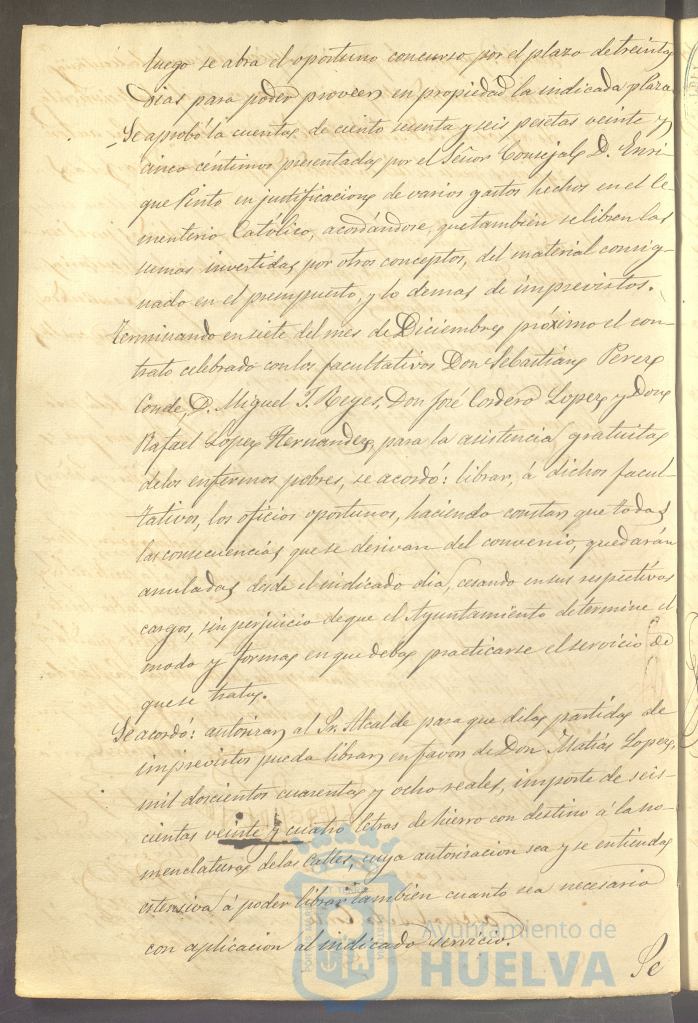 luego se abra el oportuno concurso por el plazo de treinta
Dias para poder proveer en propiedad la indicada plaza
Se aprobó la cuenta de ciento sesenta y seis pesetas veinte y
cinco céntimos presentada por el Señor Consejal D. Enri-
que Pinto en justificacion de varios gastos hechos en el Ce-
menterio Católico, acordándose, que tambien se libren las
sumas invertidas por otros conceptos, del material consig-
nado en el presupuesto, y lo demas de imprevistos.
Terminando en siete del mes de Diciembre próximo el con-
trato celebrado con los facultativos Don Sebastian Perez
Conde, D. Miguel T. Reyes, Don José Cordero Lopez y Don
Rafael Lopez Hernandez, para la asistencia gratuita
delos enfermos pobres, se acordó: librar, á dichos facul-
tativos, los oficios oportunos, haciendo constar que todas
las consecuencias que se derivan del convenio, quedarán
anuladas desde el indicado dia, cesando en sus respectivos
cargos, sin perjuicio de que el Ayuntamiento determine el
modo y forma en que deba practicarse el servicio de
que se trata.
Se acordó: autorizar al Sr. Alcalde para que dela partida de
imprevistos pueda librar en favor de Don Matias Lopez,
mil doscientos cuarenta y ocho reales, importe de seis-
cientas veinte y cuatro letras de hierro con destino á la no-
menclatura delas Calles, cuya autorizacion sea y se entienda
estensiva á poder librar tambien cuanto sea necesario
con aplicacion al indicado servicio.
Se
Ayuntamiento de
HUELVA